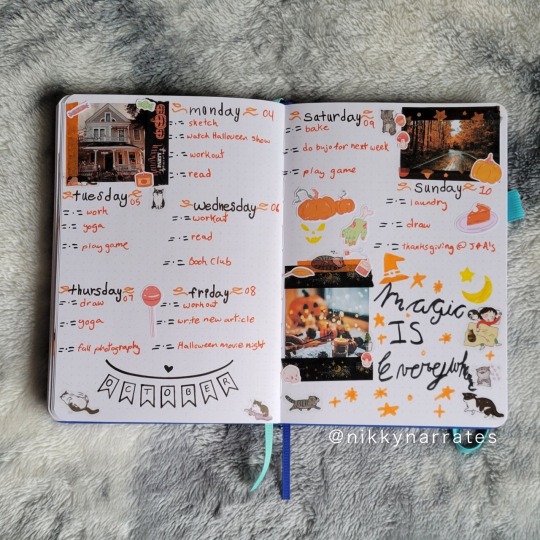 monday 04
sketch
watch Halloween show
workout
read
tuesday 05
work
yoga
play game
wednesday 06
workout
read
Book Club
thursday 07
draw
yoga
fall photography
friday 08
workout
write new article
Halloween movie night
OCTOBER
saturday 09
bake
do bujo for next week
play game
Sunday 10
laundry
draw
thanksgiving @ J+A's
Magic
IS
Everywhere
@nikkynarrates